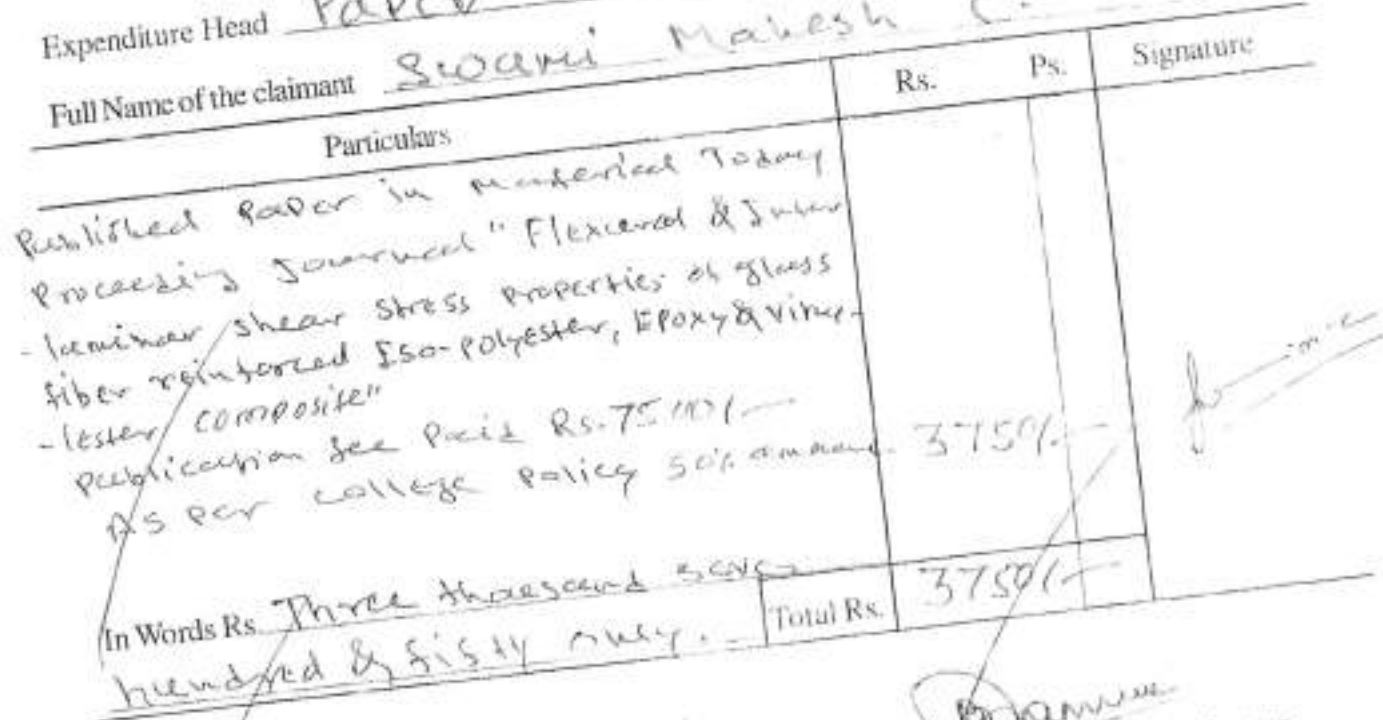 Expenditure Head Paper
Full Name of the claimant Swami Mahesh C.
Particulars Rs. Ps. Signature
Published Paper in Material Today
Proceeding Journal "Flexural & Inter
-laminar shear stress properties of glass
fiber reinforced Iso-polyester, Epoxy & Viny-
-lester composite"
Publication fee Paid Rs. 7500/-
As per college policy 50% amount 3750/-
In Words Rs. Three thousand seven
Total Rs. 3750/-
hundred & fifty only.